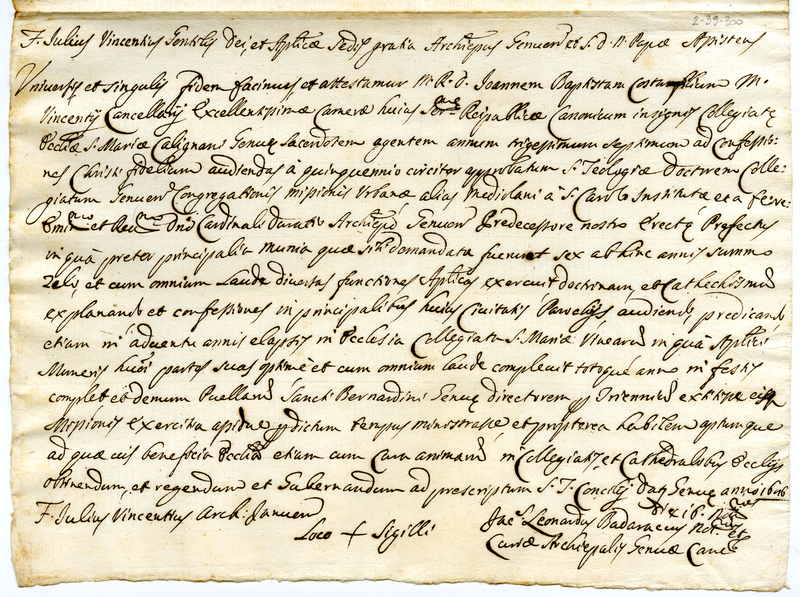 2-39-300
F. Julius Vincentius Gentilis Dei, et Aplicæ Sedis gratia Archiepus Genuen et S. d. N. Papæ Assistens
Universis et singulis fidem facimus et attestamur M. R. D. Joannem Baptistam M.
Vincentij Cancellarij Excellentissimæ Cameræ huius Ser.me Reipublicæ Canonicum insignis Collegiatę
Eccliæ S. Mariæ Genuę sacerdotem agentem annum trigessimum septimum ad Confessio-
nes Christi fidelium audiendas à quinquennio circiter approbatum S. Teologiæ Doctorem Colle-
giatum Genuen Congregationis missionis Urbanæ alias Mediolani à S. Carolo Institutæ et a
Em.mo et Rev.mo Dno Cardinali Duratio Archiepo Genuen Predecessore nostro Erectę Prefectus
in quâ preter principalia munia quæ sibi demandata fuerunt sex ab hinc annis summo
Zelo, et cum omnium Laude diversas functiones Aplicas exercuit doctrinam, et Cathechismum
explanando et confessiones in principalibus huius Civitatis Parochijs audiendo, predicando
etiam in adventu annis elapsis in Ecclesia Collegiata S. Mariæ Vinearum in quâ Aplici
Muneris huiusmodi partes suas optimè et cum omnium laude complevit totoque anno in festis
complet et demum Puellarum Sancti Bernardini Genuę directorem p Triennium extitisse
Missionis exercitia assidue p dictum tempus ministrasse et propterea habilem aptumque
ad quæcumque beneficia Ecclica etiam cum Cura animarum in Collegiatis, et Cathedralibus Ecclijs
obtinendum, et regendum et Gubernandum ad prescriptum S. T. Concilij Dat Genuę anno 1686
die 16.
F. Julius Vincentius Arch. Januen
Loco + Sigilli
Jac.s Leonardus Badaraccus Not.
Curiæ Archiepalis Genuæ Canc.